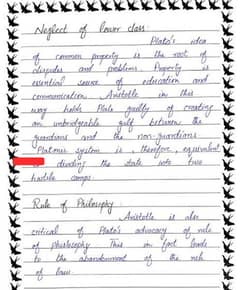 Neglect of lower class:
Plato's idea
of common property is the root of
disputes and problems. Property is
essential source of education and
communication. Aristotle in this
way holds Plato guilty of creating
an unbridgeable gulf between the
guardians and the non-guardians.
Platonic system is, therefore, equivalent
dividing the state into two
hostile camps.
Rule of Philosophy:
Aristotle is also
critical of Plato's advocacy of rule
of philosophy. This in fact leads
to the abandonment of the
of law.